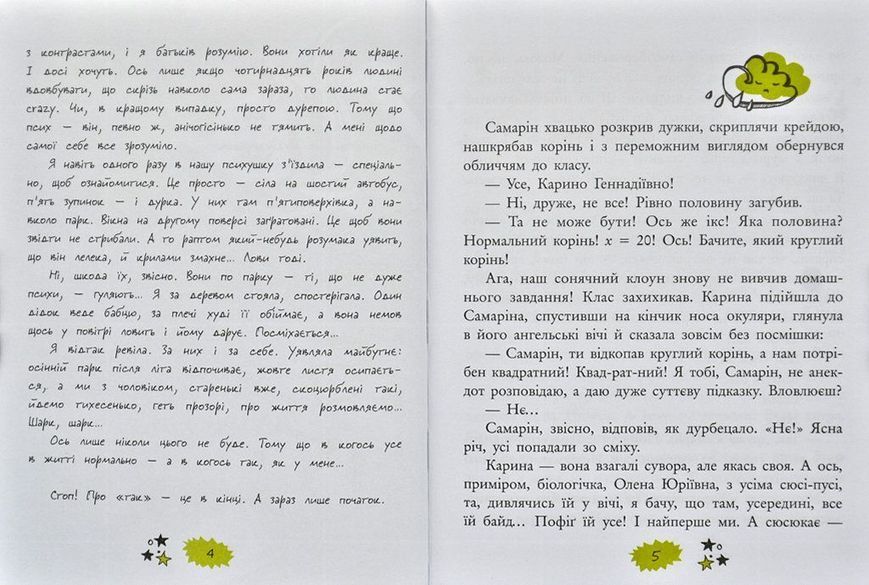 з контрастами, і я батьків розумію. Вони хотіли як краще.
І досі хочуть. Ось лише якщо чотирнадцять років людині
вдовбувати, що скрізь навколо сама зараза, то людина стає
crazy. Чи, в кращому випадку, просто дурепою. Тому що
псих — він, певно ж, анічогісінько не тямить. А мені щодо
самої себе все зрозуміло.
Я навіть одного разу в нашу психушку з'їздила — спеціаль-
но, щоб ознайомитися. Це просто — сіла на шостий автобус,
п'ять зупинок — і дурка. У них там п'ятиповерхівка, а на-
вколо парк. Вікна на другому поверсі заґратовані. Це щоб вони
звідти не стрибали. А то раптом який-небудь розумака уявить,
що він лелека, й крилами змахне... Лови тоді.
Ні, шкода їх, звісно. Вони по парку — ті, що не дуже
психи, — гуляють... Я за деревом стояла, спостерігала. Один
дідок веде бабцю, за плечі худі її обіймає, а вона немов
щось у повітрі ловить і йому дарує. Посміхається...
Я відтак ревіла. За них і за себе. Уявляла майбутнє:
осінній парк після літа відпочиває, жовте листя осипаєть-
ся, а ми з чоловіком, старенькі вже, скоцюрблені такі,
йдемо тихесенько, геть прозорі, про життя розмовляємо...
Шарк, шарк...
Ось лише ніколи цього не буде. Тому що в когось усе
в житті нормально — а в когось так, як у мене...
Стоп! Про «так» — це в кінці. А зараз лише початок.
4
Самарін хвацько розкрив дужки, скриплячи крейдою,
нашкрябав корінь і з переможним виглядом обернувся
обличчям до класу.
— Усе, Карино Геннадіївно!
— Ні, друже, не все! Рівно половину загубив.
— Та не може бути! Ось же ікс! Яка половина?
Нормальний корінь! x = 20! Ось! Бачите, який круглий
корінь!
Ага, наш сонячний клоун знову не вивчив домаш-
нього завдання! Клас захихикав. Карина підійшла до
Самаріна, спустивши на кінчик носа окуляри, глянула
в його ангельські вічі й сказала зовсім без посмішки:
— Самарін, ти відкопав круглий корінь, а нам потрі-
бен квадратний! Квад-рат-ний! Я тобі, Самарін, не анек-
дот розповідаю, а даю дуже суттєву підказку. Вловлюєш?
— Нє...
Самарін, звісно, відповів, як дурбецало. «Нє!» Ясна
річ, усі попадали зо сміху.
Карина — вона взагалі сувора, але якась своя. А ось,
приміром, біологічка, Олена Юріївна, з усіма сюсі-пусі,
та, дивлячись їй у вічі, я бачу, що там, усередині, все
їй байд... Пофіґ їй усе! І найперше ми. А сюсюкає —
5